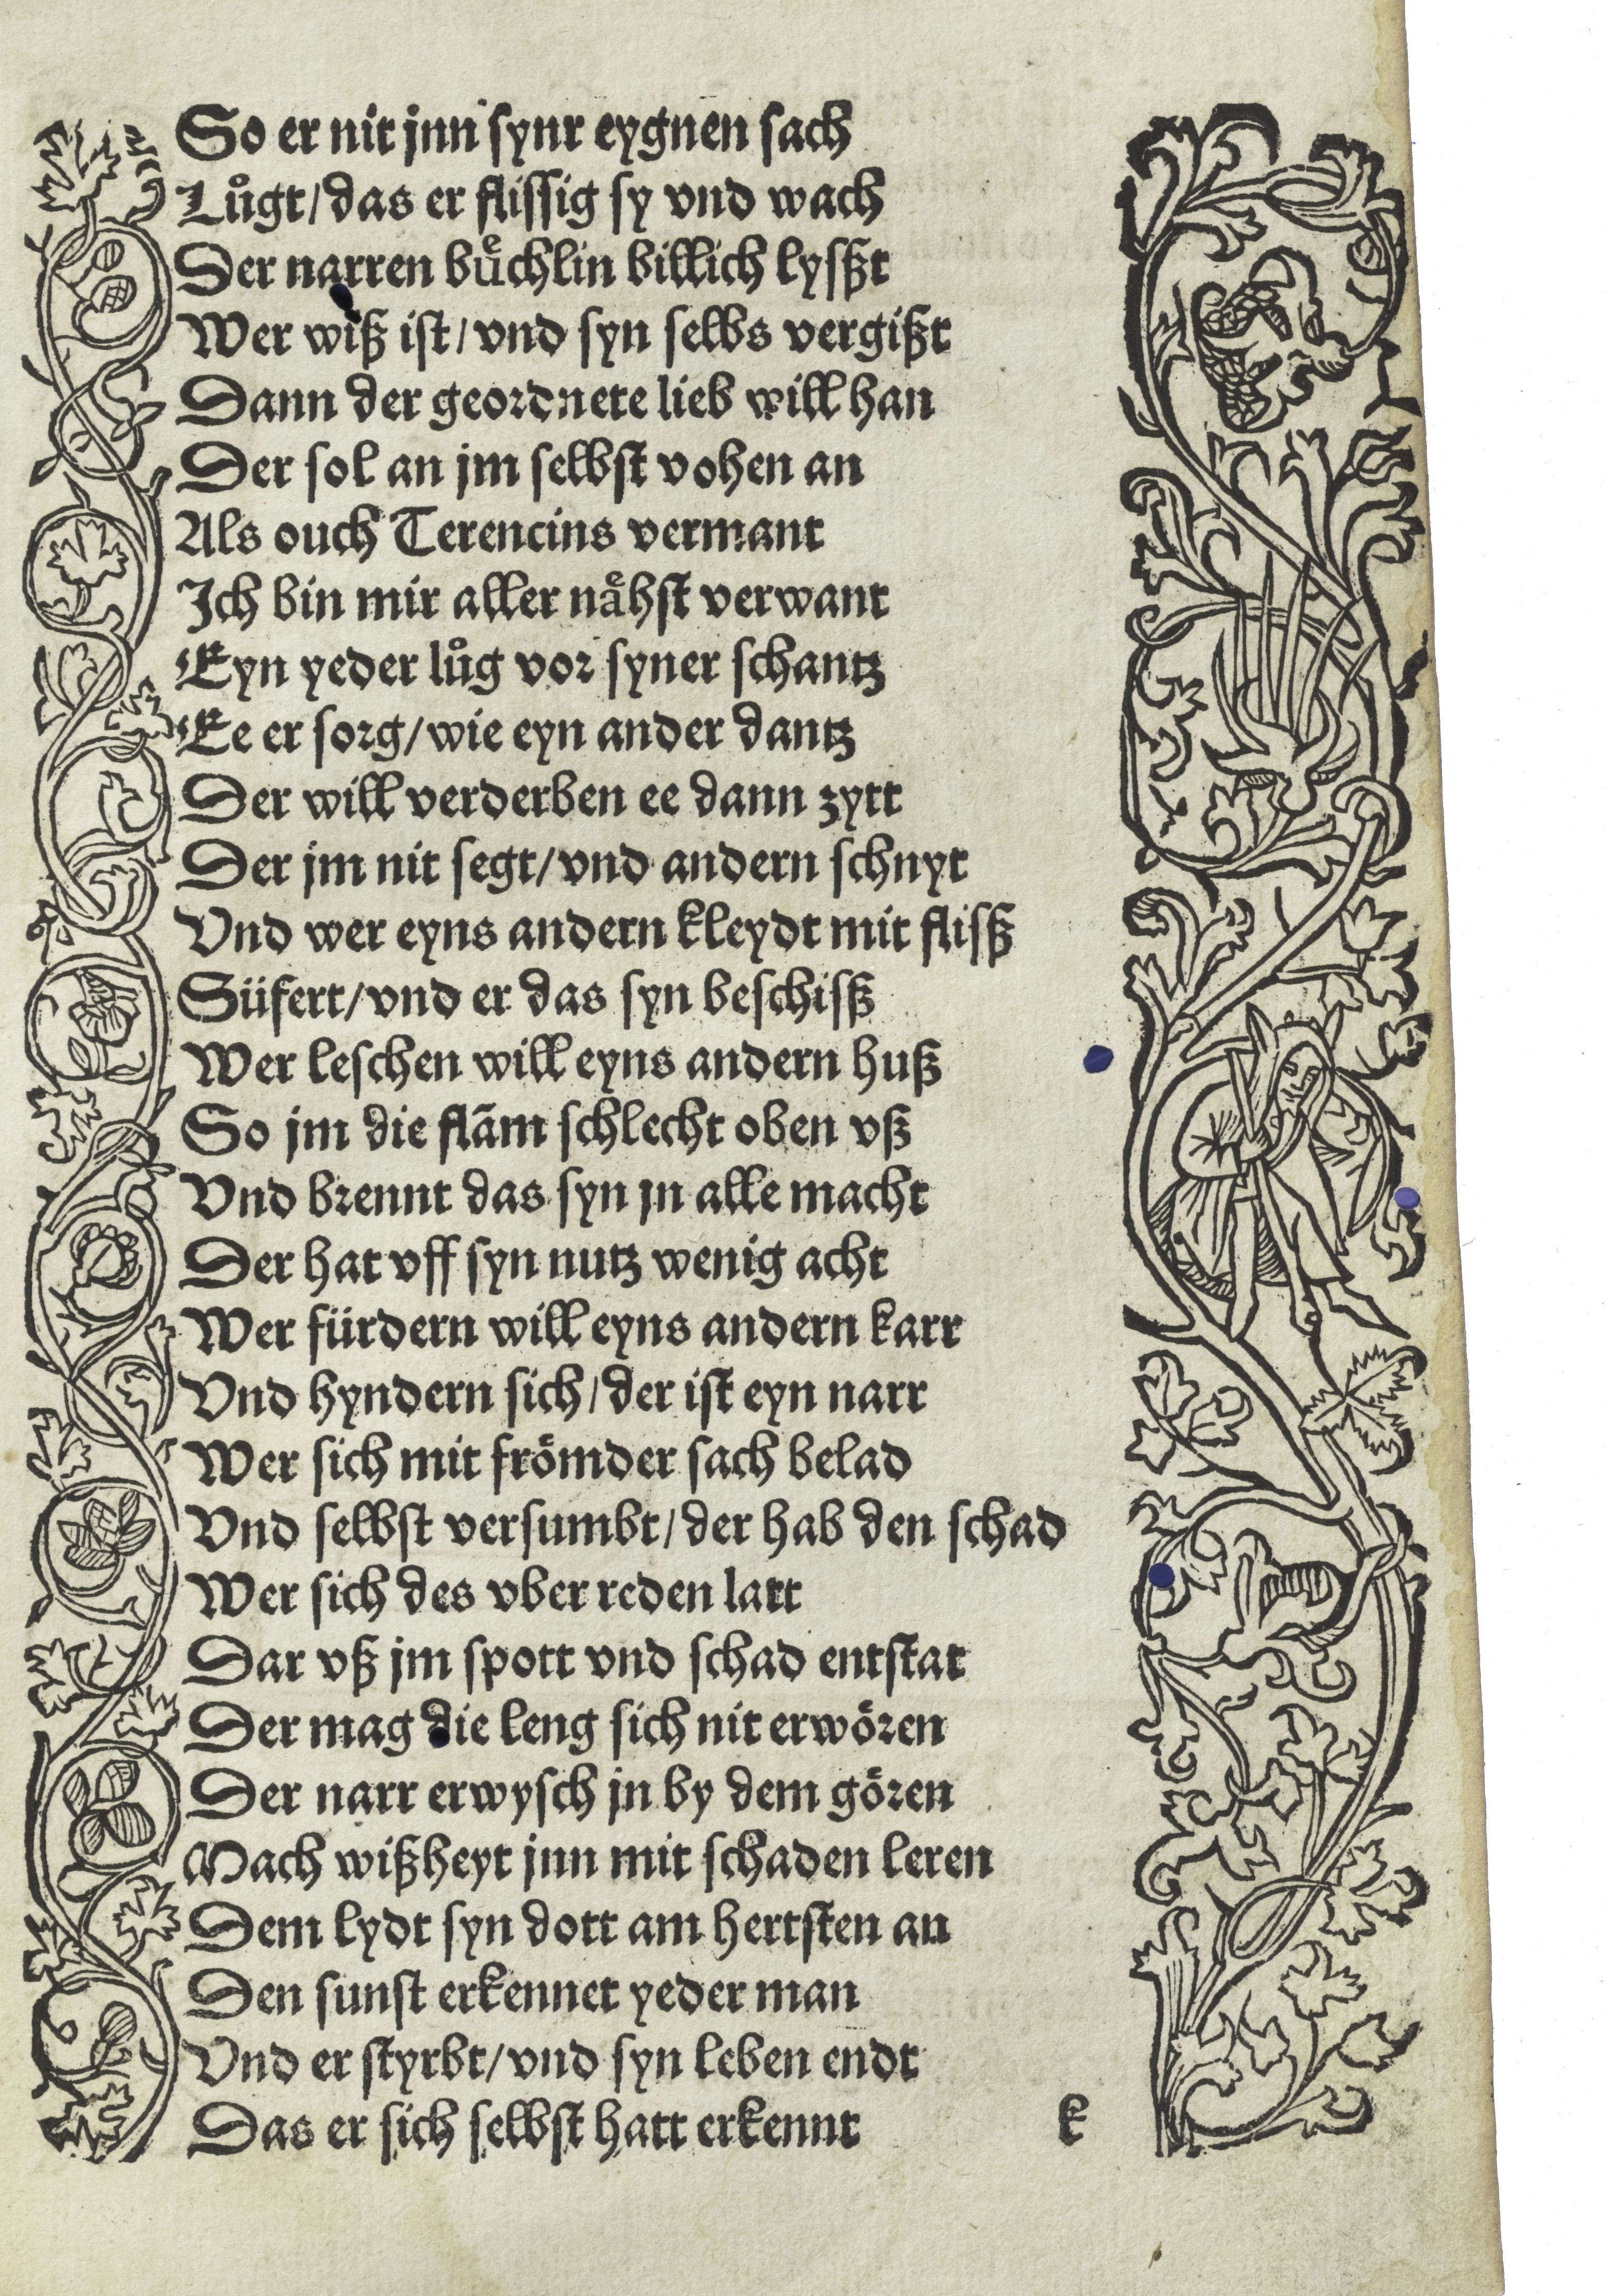 So er nit jnn synr eygnen sach
Lůgt/das er flissig sy vnd wach
Der narren bůͤchlin billich lysßt
Wer wiß ist/vnd syn selbs vergißt
Dann der geordnete lieb will han
Der sol an jm selbst vohen an
Als ouch Terencius vermant
Ich bin mir aller naͤhst verwant
Eyn yeder lůg vor syner schantz
Ee er sorg/wie eyn ander dantz
Der will verderben ee dann zytt
Der jm nit segt/vnd andern schnyt
Vnd wer eyns andern kleydt mit flisß
Süfert/vnd er das syn beschisß
Wer leschen will eyns andern huß
So jm die flãm schlecht oben vß
Vnd brennt das syn jn alle macht
Der hat vff syn nutz wenig acht
Wer fürdern will eyns andern karr
Vnd hyndern sich/der ist eyn narr
Wer sich mit frömder sach belad
Vnd selbst versumbt/der hab den schad
Wer sich des vber reden latt
Dar vß jm spott vnd schad entstat
Der mag die leng sich nit erwören
Der narr erwysch jn by dem gören
Nach wißheyt jnn mit schaden leren
Dem lydt syn dott am hertsten an
Den sunst erkennet yeder man
Vnd er styrbt/vnd syn leben endt
Das er sich selbst hatt erkennt
k